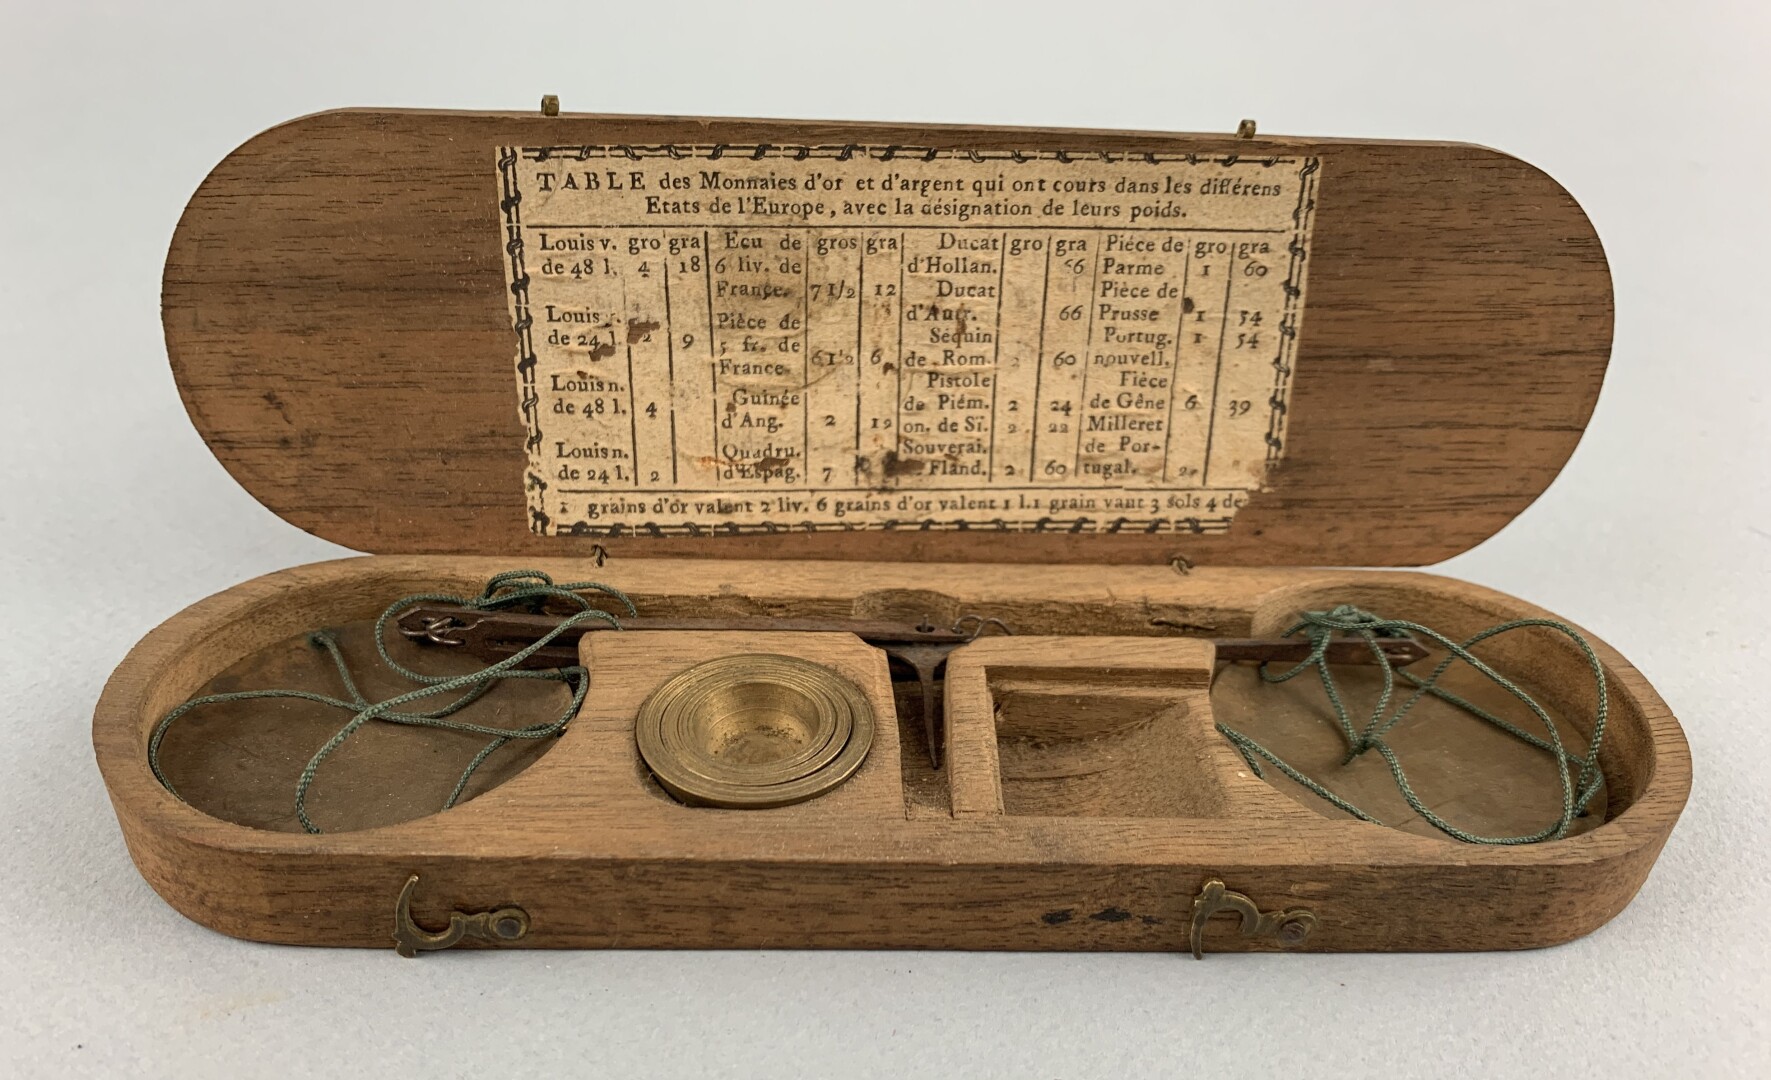 TABLE des Monnaies d'or et d'argent qui ont cours dans les différens
Etats de l'Europe, avec la désignation de leurs poids.
Louis v. gro gra
de 48 l. 4 18
Louis
de 24 l. 2 9
Louis n.
de 48 l. 4
Louis n.
de 24 l. 2
Ecu de gros gra
6 liv. de
France. 7 1/2 12
Pièce de
5 fr. de
France 6 1/2 6
Guinée
d'Ang. 2 19
Quadru.
d'Espag. 7
Ducat gro gra
d'Hollan. 66
Ducat
d'Autr. 66
Séquin
de Rom. 2 60
Pistole
de Piém. 2 24
on. de Si. 2 22
Souverai.
Fland. 2 60
Piéce de gro gra
Parme 1 60
Pièce de
Prusse 1 54
Portug. 1 54
nouvell.
Fiéce
de Gêne 6 39
Milleret
de Por-
tugal. 2
grains d'or valent 2 liv. 6 grains d'or valent 1 l. 1 grain vaut 3 sols 4 de